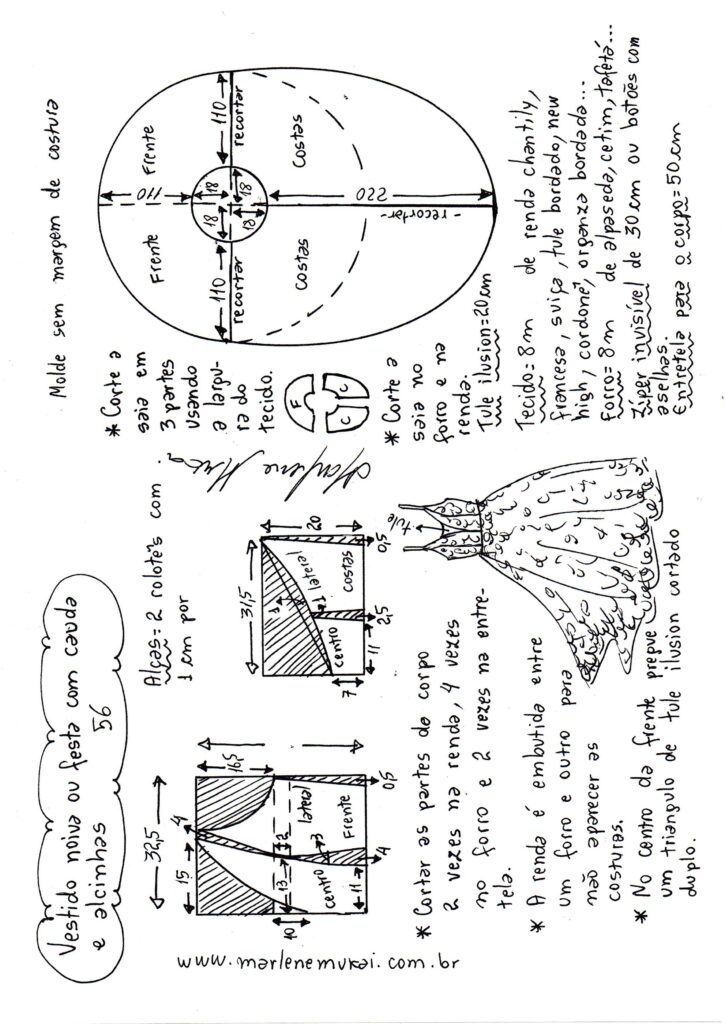 Vestido noiva ou festa com cauda
e alcinhas 56
Molde sem margem de costura
Alças = 2 rolotês com
1 cm por
32,5
15
4
16,5
10
13
12
3
centro
lateral
Frente
11
4
0,5
31,5
20
1
1
lateral
centro
costas
7
11
2,5
0,5
Marlene Mukai
* Corte a
saia em
3 partes
usando
a largu-
ra do
tecido.
F
C
C
* Corte a
saia no
forro e na
renda.
Tule ilusion = 20 cm
Frente
Frente
110
110
110
18
18
18
18
recortar
recortar
costas
costas
220
- recortar -
www.marlenemukai.com.br
* Cortar as partes do corpo
2 vezes na renda, 4 vezes
no forro e 2 vezes na entre-
tela.
* A renda é embutida entre
um forro e outro para
não aparecer as
costuras.
* No centro da frente pregue
um triangulo de tule ilusion cortado
duplo.
tule
Tecido = 8 m de renda chantily,
francesa, suiça, tule bordado, new
high, cordonê, organza bordada...
Forro = 8 m de alpaseda, cetim, tafetá...
Ziper invisível de 30 cm ou botões com
aselhas.
Entretela para o corpo = 50 cm